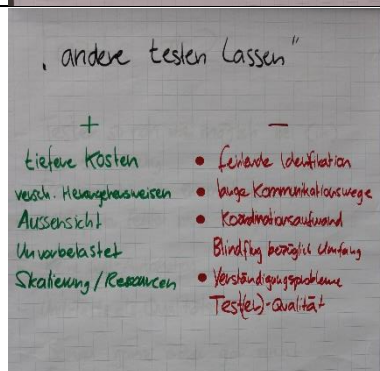 „andere testen lassen"
+
tiefere Kosten
versch. Herangehensweisen
Aussensicht
Unvorbelastet
Skalierung / Ressourcen
–
• fehlende Identifikation
• lange Kommunikationswege
• Koordinationsaufwand
Blindflug bezüglich Umfang
• Verständigungsprobleme
Test(er)-Qualität